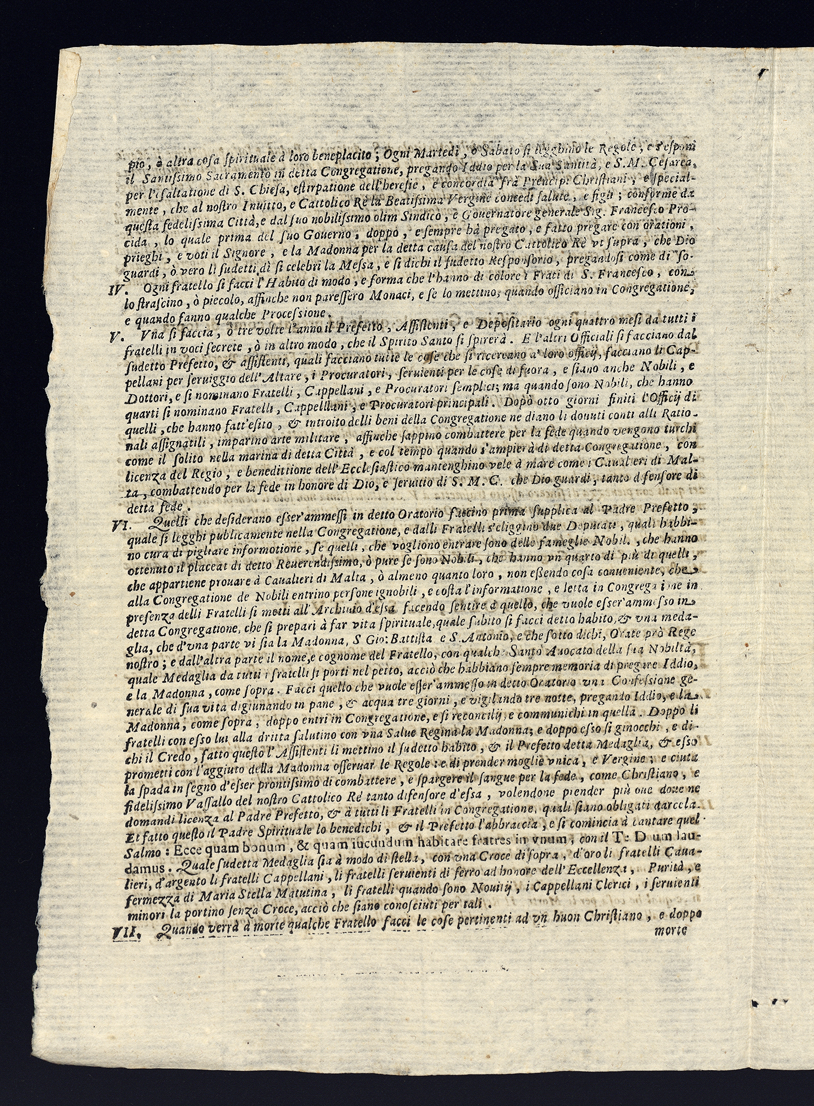 pio, ò altra cosa spirituale à loro beneplacito; Ogni Martedi, ò Sabato si legghino le Regole, e s'esponi
il Santissimo Sacramento in detta Congregatione, pregando Iddio per la Sua Santità, e S.M. Cesarea,
per l'esaltatione di S. Chiesa, estirpatione dell'heresie, e concordia frà Prencipi Christiani, e special-
mente, che al nostro Inuitto, e Cattolico Rè la Beatissima Vergine concedi salute, e figli; conforme da
questa fedelissima Città, e dal suo nobilissimo olim Sindico, e Gouernatore generale Sig. Francesco Pro-
cida, lo quale prima del suo Gouerno, doppò, e sempre hà pregato, e fatto pregare con orationi,
prieghi, e voti il Signore, e la Madonna per la detta causa del nostro Cattolico Rè vt supra, che Dio
guardi, ò vero li sudetti dì si celebri la Messa, e si dichi il sudetto Responsorio, pregandosi come di so-
IV. Ogni fratello si facci l'Habito di modo, e forma che l'hanno di colore i Frati di S. Francesco, con
lo strascino, ò piccolo, affinche non paressero Monaci, e se lo mettino, quando officiano in Congregatione,
e quando fanno qualche Processione.
V. Vna si faccia, ò tre volte l'anno il Prefetto, Assistenti, e Depositario ogni quattro mesi da tutti i
fratelli in voci secrete, ò in altro modo, che il Spirito Santo si spirerà. E l'altri Officiali si facciano dal
sudetto Prefetto, & assistenti, quali facciano tutte le cose che si ricercano a' loro officij, facciano li Cap-
pellani per seruiggio dell'Altare, i Procuratori, seruienti per le cose di fuora, e siano anche Nobili, e
Dottori, e si nominano Fratelli, Cappellani, e Procuratori semplici; ma quando sono Nobili, che hanno
quarti si nominano Fratelli, Cappelllani, e Procuratori principali. Dopò otto giorni finiti l'Officij di
quelli, che hanno fatt'esito, & introito delli beni della Congregatione ne diano li douuti conti alli Ratio-
nali assignatili, imparino arte militare, affinche sappino combattere per la fede quando vengono turchi
come il solito nella marina di detta Città, e col tempo quando s'ampierà di detta Congregatione, con
licenza del Regio, e benedittione dell'Ecclesiastico mantenghino vele à mare come i Caualieri di Mal-
ta, combattendo per la fede in honore di Dio, e seruitio di S. M. C. che Dio guardi, tanto difensore di
detta fede.
VI. Quelli che desiderano esser'ammessi in detto Oratorio faccino prima supplica al Padre Prefetto,
quale si legghi publicamente nella Congregatione, e dalli Fratelli s'eligghino due Deputati, quali habbi-
no cura di pigliare informotione, se quelli, che vogliono entrare sono delle fameglie Nobili, che hanno
ottenuto il placcat di detto Reuerendissimo, ò pure se sono Nobili, che hanno vn quarto di più di quelli,
che appartiene prouare à Caualieri di Malta, ò almeno quanto loro, non essendo cosa conueniente, che
alla Congregatione de Nobili entrino persone ignobili, e costa l'informatione, e letta in Congregatione in
presenza delli Fratelli si metti all'Archiuio d'essa facendo sentire à quello, che vuole esser'ammesso in
detta Congregatione, che si prepari à far vita spirituale, quale subito si facci detto habito, & vna meda-
glia, che d'vna parte vi sia la Madonna, S. Gio: Battista e S. Antonio, e che sotto dichi, Orate prò Rege
nostro; e dall'altra parte il nome, e cognome del Fratello, con qualche Santo Auocato della sua Nobiltà,
quale Medaglia da tutti i fratelli si porti nel petto, acciò che habbiano sempre memoria di pregare Iddio,
e la Madonna, come sopra. Facci quello che vuole esser'ammesso in detto Oratorio vna Confessione ge-
nerale di sua vita digiunando in pane, & acqua tre giorni, e vigilando tre notte, pregando Iddio, e la
Madonna, come sopra; doppo entri in Congregatione, e si reconcilij e communichi in quella. Doppo li
fratelli con esso lui alla dritta salutino con vna Salue Regina la Madonna; e doppo esso si ginocchi, e di-
chi il Credo, fatto questo l'Assistenti li mettino il sudetto habito, & il Prefetto detta Medaglia, & esso
prometti con l'aggiuto della Madonna osseruar le Regole: e di prender moglie vnica, e Vergine; e cinta
la spada in segno d'esser prontissimo di combattere, e spargere il sangue per la fede, come Christiano, e
fidelissimo Vassallo del nostro Cattolico Rè tanto difensore d'essa, volendone prender più due done ne
domandi licenza al Padre Prefetto, & à tutti li Fratelli in Congregatione, quali siano obligati darcela.
Et fatto questo il Padre Spirituale lo benedichi, & il Prefetto l'abbraccia, e si comincia à cantare quel
Salmo: Ecce quam bonum, & quam iucundum habitare fratres in vnum; con il Te Deum lau-
damus. Quale sudetta Medaglia sia à modo di stella, con vna Croce di sopra, d'oro li fratelli Caua-
lieri, d'argento li fratelli Cappellani, li fratelli seruienti di ferro ad honore dell'Eccellenza, Purità, e
fermezza di Maria Stella Matutina, li fratelli quando sono Nouitij, i Cappellani Clerici, i seruienti
minori la portino senza Croce, acciò che siano conosciuti per tali.
VII. Quando verrà à morte qualche Fratello facci le cose pertinenti ad vn buon Christiano, e doppo
morte